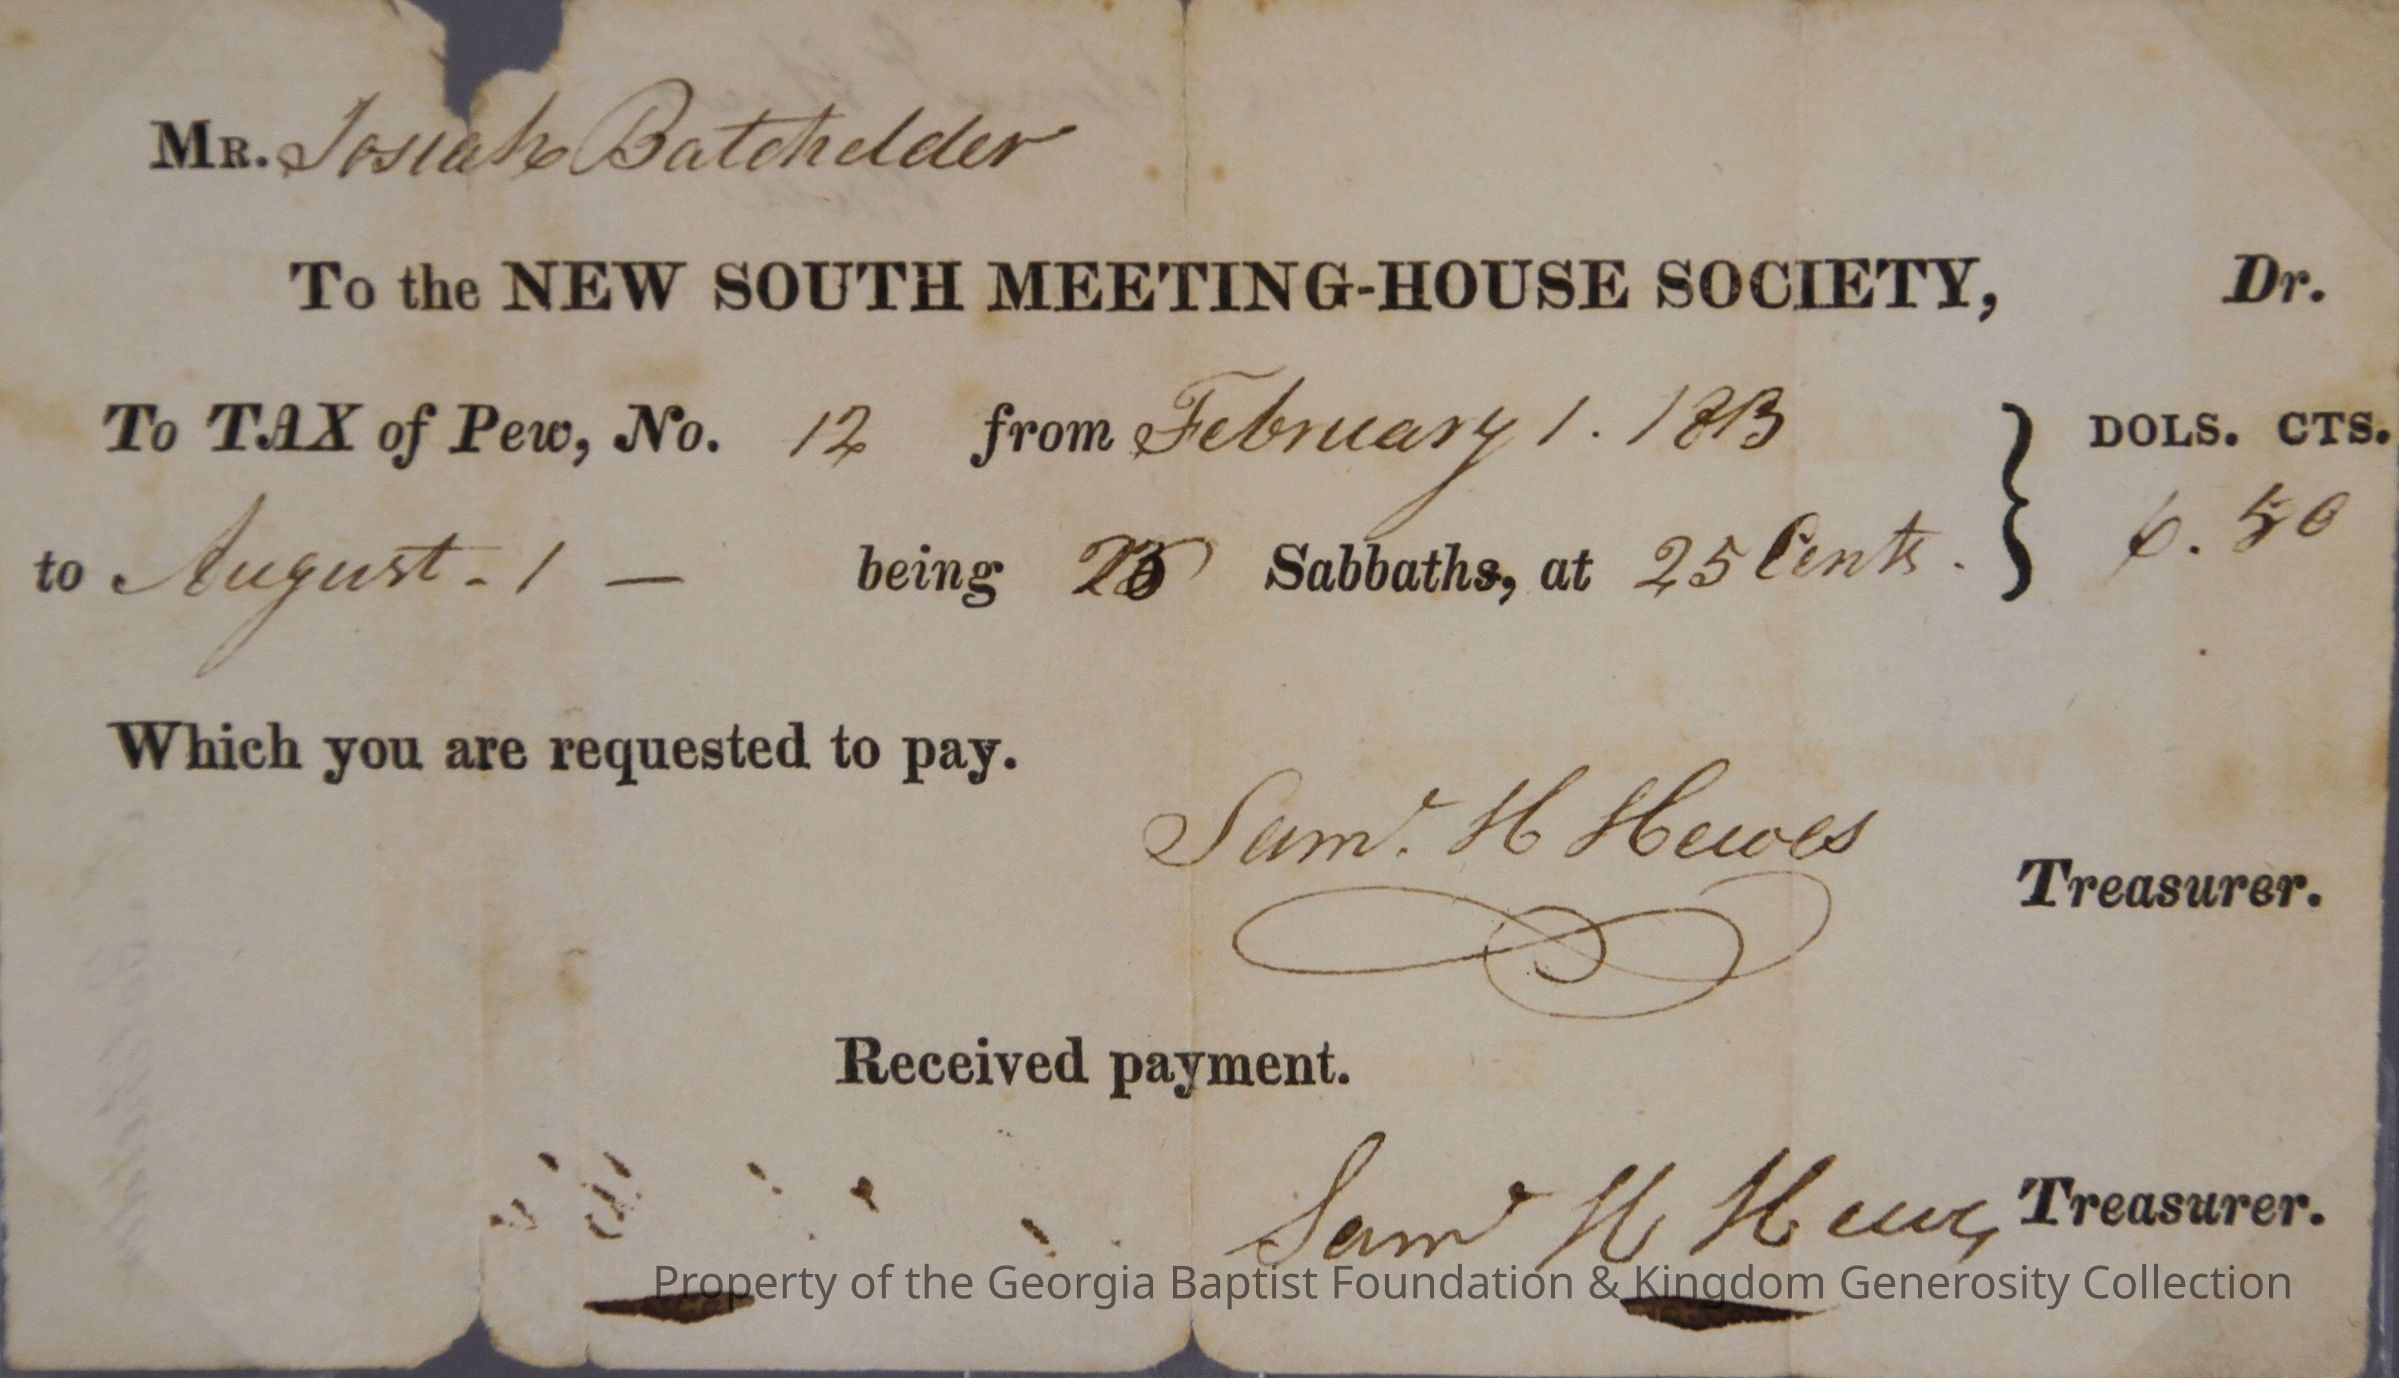 MR. Josiah Batchelder
To the NEW SOUTH MEETING-HOUSE SOCIETY, Dr.
To TAX of Pew, No. 12 from February 1. 1813 DOLS. CTS.
to August - 1 — being Sabbaths, at 25 Cents. 6. 50
Which you are requested to pay.
Saml. H Hewes
Treasurer.
Received payment.
Saml H Hewes Treasurer.
Property of the Georgia Baptist Foundation & Kingdom Generosity Collection